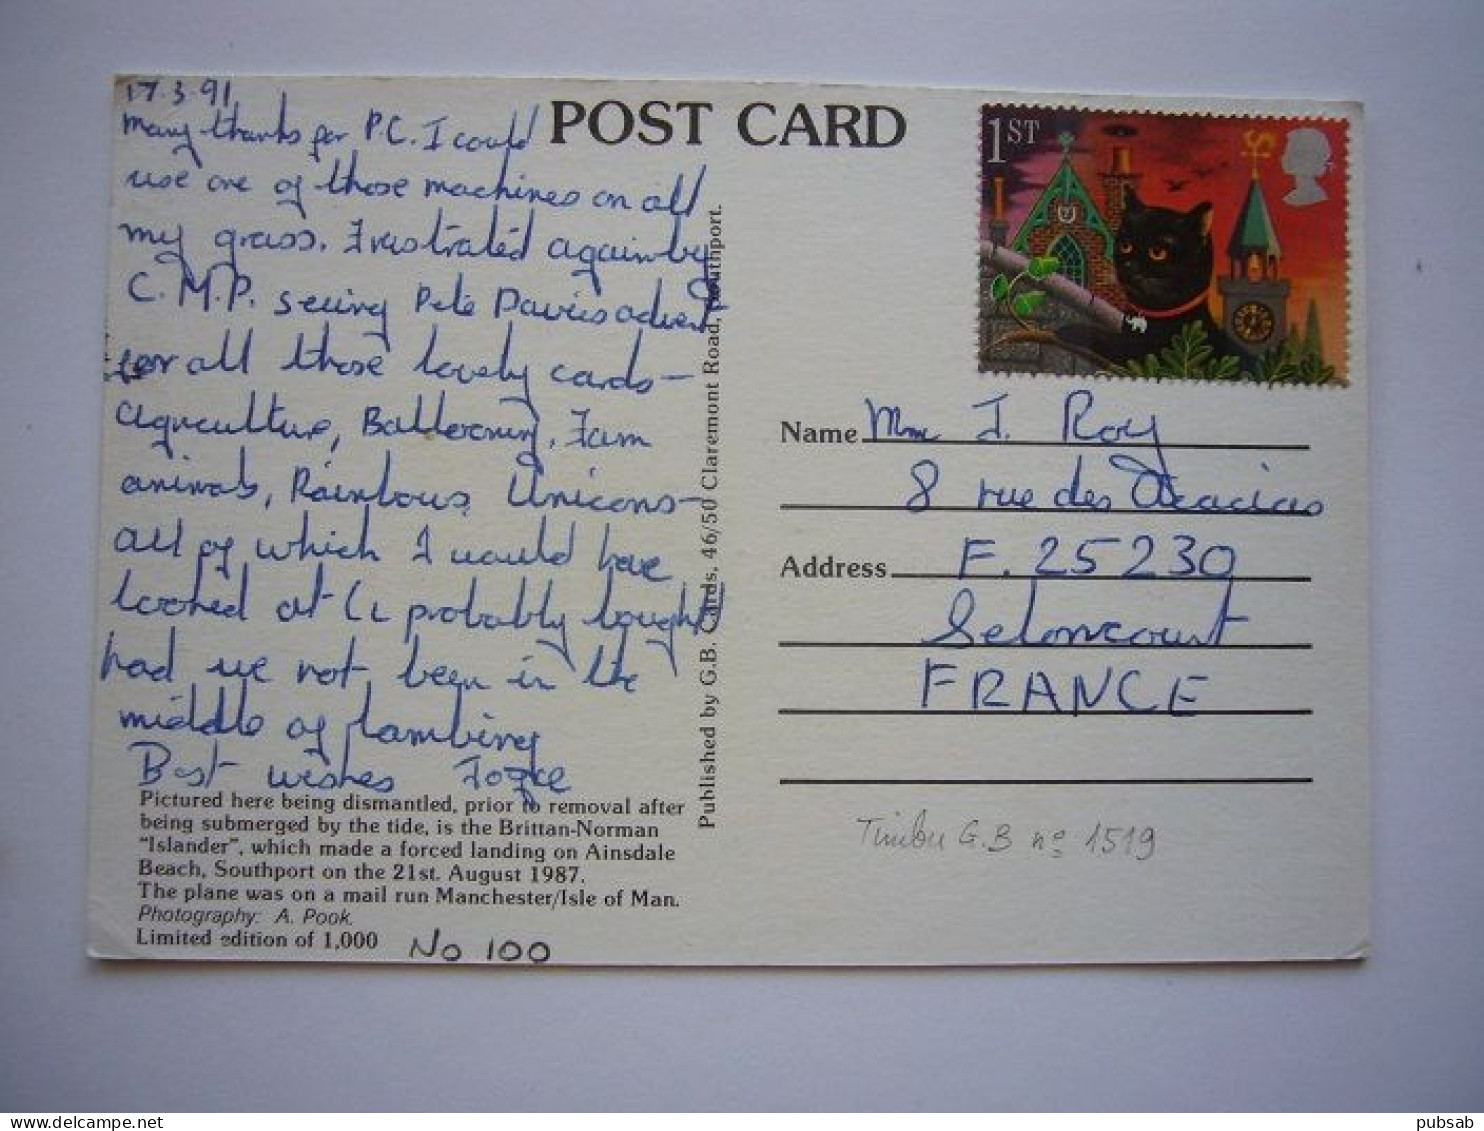 17.3.91
Many thanks for P.C. I could
use one of those machines on all
my grass. Frustrated again by
C.M.P. seeing Pete Davies advert
for all those lovely cards –
agriculture, Ballooning, Farm
animals, Rainbows, Unicorns –
all of which I would have
looked at (& probably bought)
had we not been in the
middle of lambing
Best wishes Joyce
Pictured here being dismantled, prior to removal after
being submerged by the tide, is the Brittan-Norman
"Islander", which made a forced landing on Ainsdale
Beach, Southport on the 21st. August 1987.
The plane was on a mail run Manchester/Isle of Man.
Photography: A. Pook.
Limited edition of 1,000 No 100
POST CARD
Published by G.B. Cards, 46/50 Claremont Road, Southport.
1ST
Name Mme J. Roy
8 rue des Acacias
Address F. 25230
Seloncourt
FRANCE
Timbre G.B nº 1519
pubsab
delcampe.net